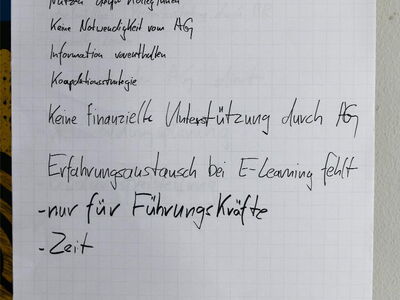 Nutzen unter Kolleginnen
Keine Notwendigkeit vom AG
Information vorenthalten
Kooperationsstrategie
Keine finanzielle Unterstützung durch AG
Erfahrungsaustausch bei E-Learning fehlt
-nur für Führungskräfte
-Zeit